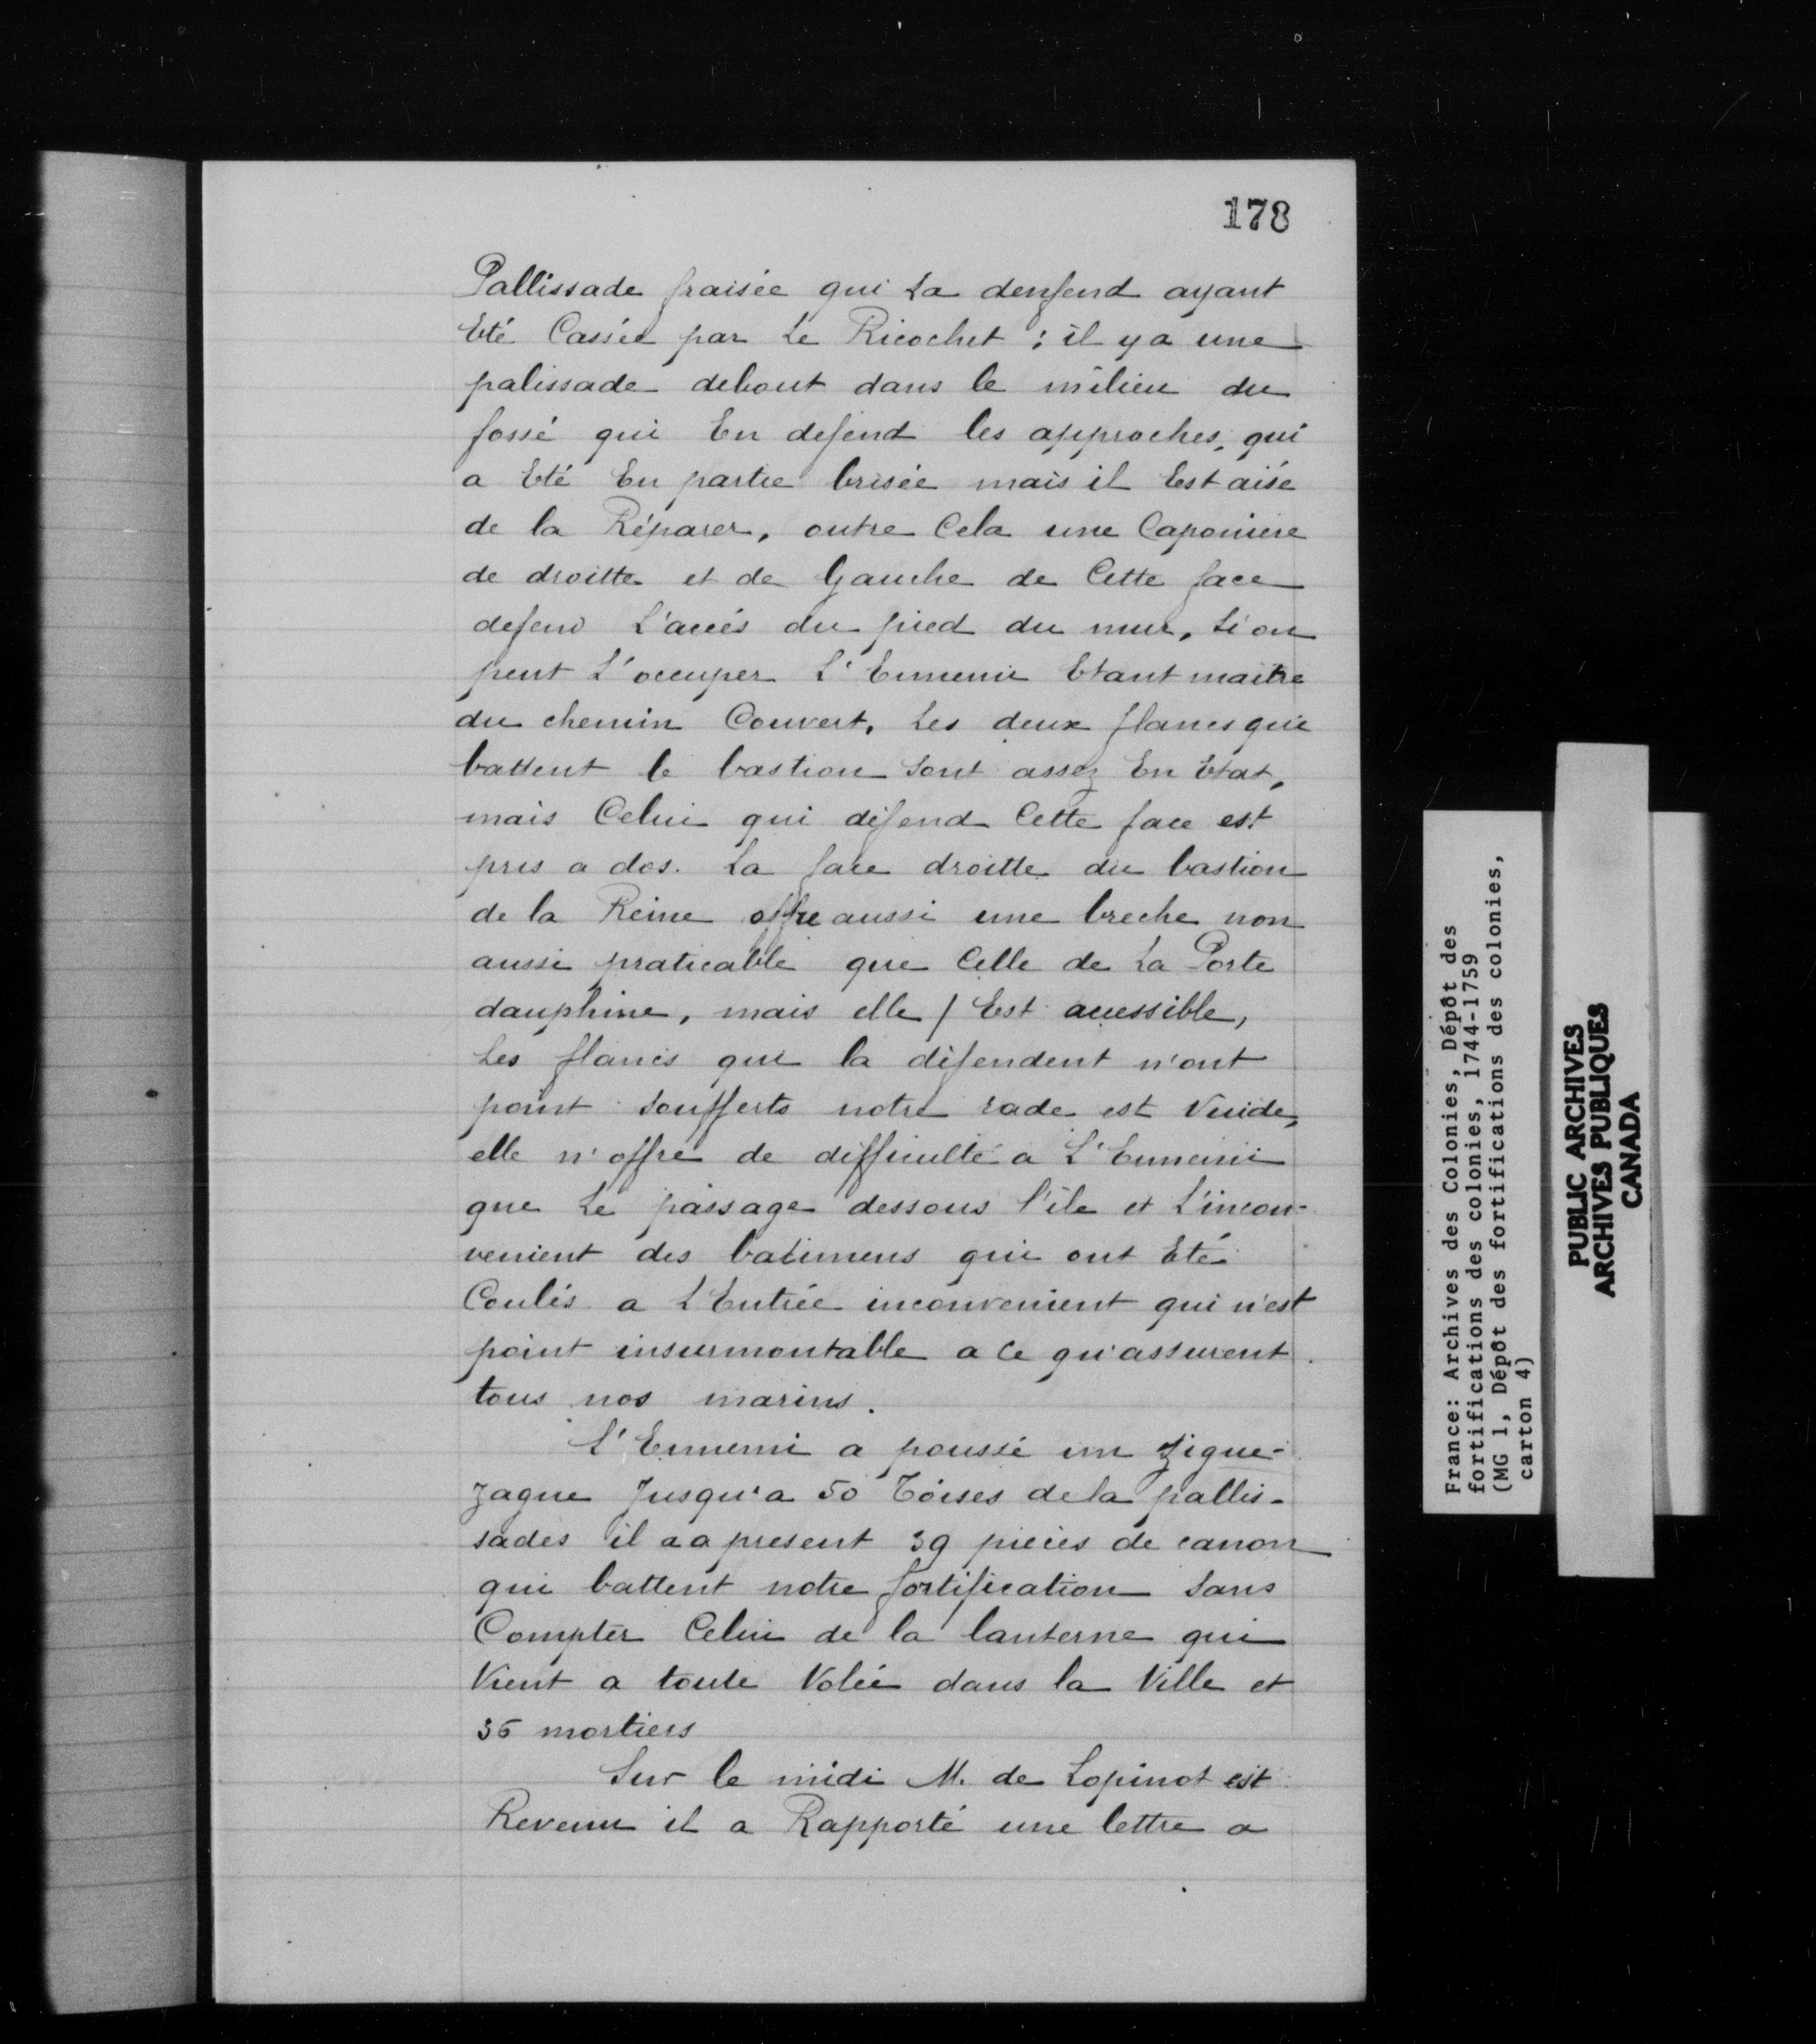 178
Pallissade fraisée qui La denfend ayant
Eté Cassée par Le Ricochet ; il y a une
palissade debout dans le milieu du
fossé qui En defend les approches, qui
a Eté En partie brisée mais il Est aisé
de la Réparer, outre Cela une Caponiere
de droitte et de Gauche de Cette face
defend L'accés du pied du mur, Si on
peut L'occuper L'Ennemi Etant maitre
du chemin Couvert. Les deux flancs qui
battent le bastion Sont assez En Etat,
mais Celui qui défend Cette face est
pris a dos. La face droitte du bastion
de la Reine offre aussi une breche non
aussi praticable que Celle de La Porte
dauphine, mais elle / Est accessible,
Les flancs qui la défendent n'ont
point Soufferts notre rade est Vuide,
elle n'offre de difficulté a L'Ennemi
que Le passage dessous l'ile et L'incon-
venient des batimens qui ont Eté
Coulés a L'Entrée inconvenient qui n'est
point insurmontable a Ce qu'assurent
tous nos marins.
L'Ennemi a poussé un Zigue-
zague Jusqu'a 50 Toises de la pallis-
sades il a a present 39 pieces de canon
qui battent notre fortification Sans
Compter Celui de la lanterne qui
Vient a toute Volée dans la Ville et
36 mortiers
Sur le midi M. de Lopinot est
Revenu il a Rapporté une lettre a
France: Archives des Colonies, Dépôt des
fortifications des colonies, 1744-1759
(MG 1, Dépôt des fortifications des colonies,
carton 4)
PUBLIC ARCHIVES
ARCHIVES PUBLIQUES
CANADA